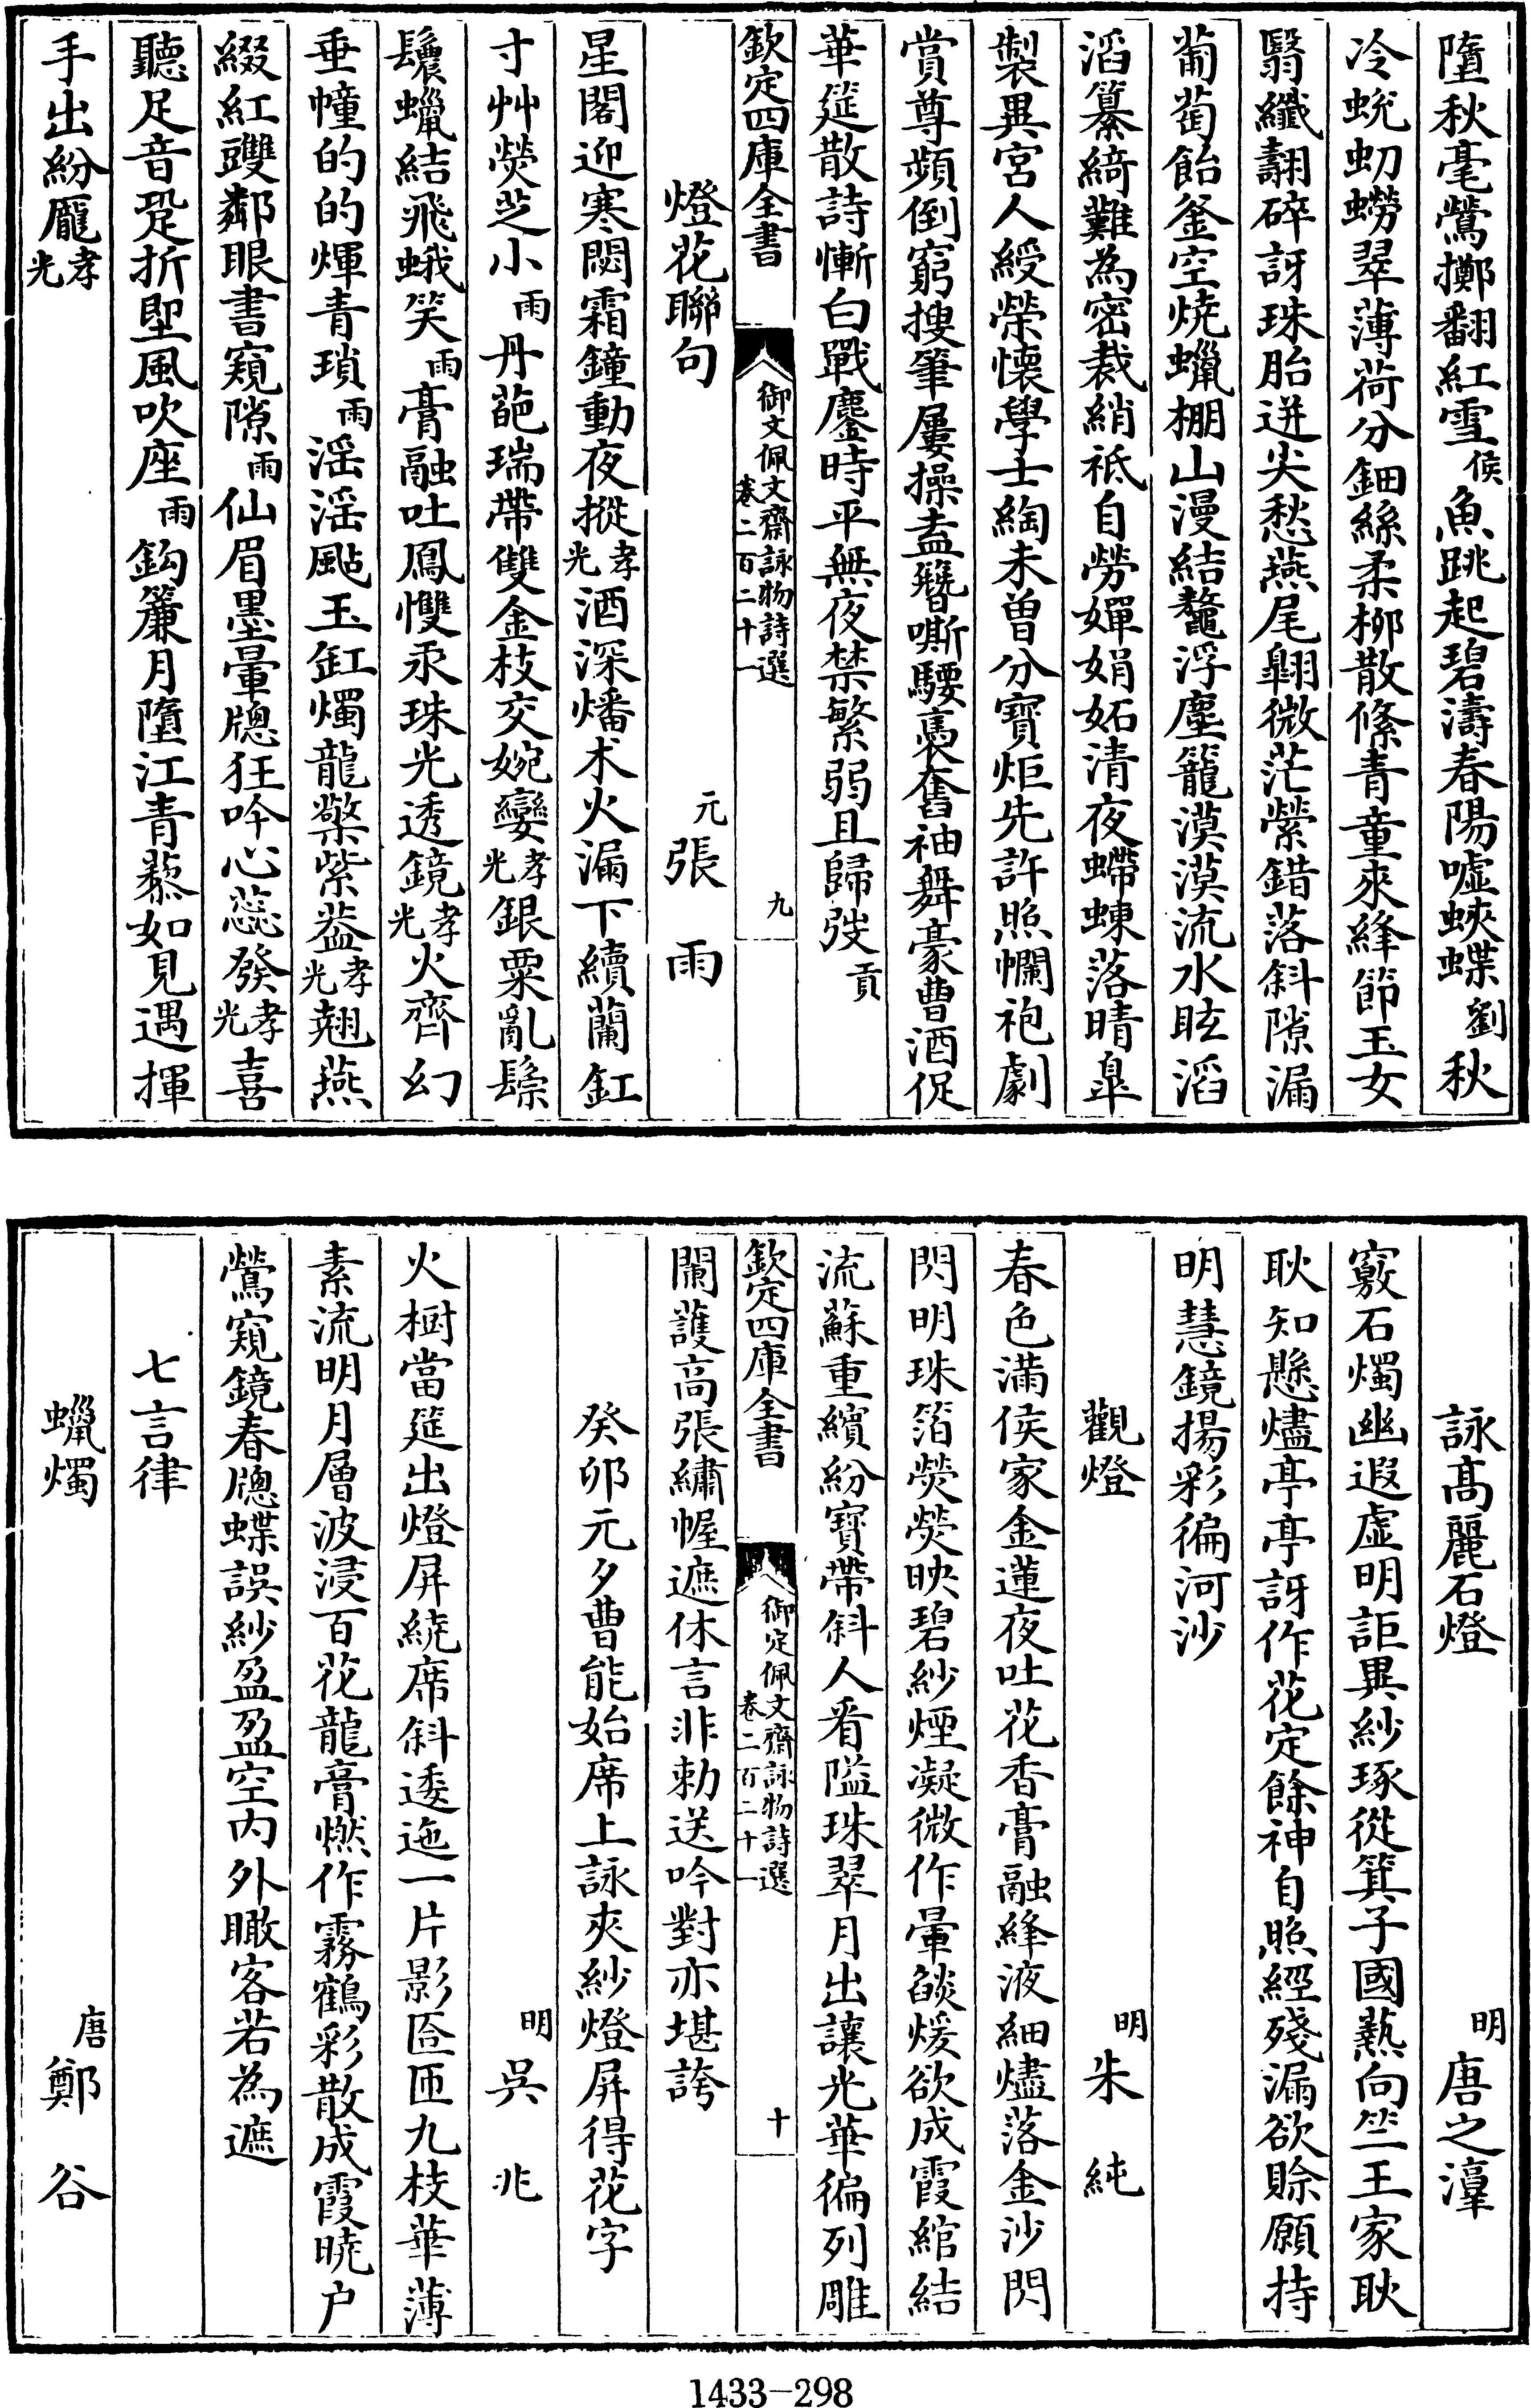 墮秋毫鶯擲翻紅雪侯魚跳起碧濤春陽噓蛺蝶劉秋
冷蛻虭蟧翠薄荷分鈿絲柔柳散絛青童來絳節玉女
翳纖翿碎訝珠胎迸尖愁燕尾翺微茫縈錯落斜隙漏
葡萄飴釜空燒蠟棚山漫結鼇浮塵籠漠漠流水眩滔
滔纂綺難為密裁綃祗自勞嬋娟妬清夜螮蝀落晴臯
製異宮人綬榮懷學士綯未曾分寶炬先許照襴袍劇
賞尊頻倒窮搜筆屢操盍簪嘶騕褭奮袖舞豪曹酒促
華筵散詩慚白戰鏖時平無夜禁繁弱且歸弢貢
欽定四庫全書
御文佩文齋詠物詩選
卷二百二十一
九
燈花聯句
元張雨
星閣迎寒閟霜鐘動夜摐孝光酒深燔朮火漏下續蘭釭
寸艸熒芝小雨丹葩瑞帶雙金枝交婉孌孝光銀粟亂鬖
鬤蠟結飛蛾笑雨膏融吐鳳慴汞珠光透鏡孝光火齊幻
垂幢的的煇青瑣雨滛滛颭玉缸燭龍檠紫葢孝光翹燕
綴紅躞鄰眼書窺隙雨仙眉墨暈牕狂吟心蕊發孝光喜
聽足音跫折堲風吹座雨鈎簾月墮江青藜如見遇揮
手出紛龐孝光
詠高麗石燈
明唐之淳
竅石燭幽遐虛明詎異紗琢從箕子國熱向竺王家耿
耿知懸燼亭亭訝作花定餘神自照經殘漏欲賒願持
明慧鏡揚彩徧河沙
觀燈
明朱純
春色滿侯家金蓮夜吐花香膏融絳液細燼落金沙閃
閃明珠箔熒熒映碧紗煙凝微作暈燄煖欲成霞綰結
流蘇重繽紛寶帶斜人看隘珠翠月出讓光華徧列雕
闌護高張繡幄遮休言非勅送吟對亦堪誇
欽定四庫全書
御定佩文齋詠物詩選
卷二百二十一
十
癸卯元夕曹能始席上詠夾紗燈屏得花字
明吳兆
火樹當筵出燈屏繞席斜逶迤一片影匼匝九枝華薄
素流明月層波浸百花龍膏燃作霧鶴彩散成霞曉户
鶯窺鏡春牕蝶誤紗盈盈空內外瞰客若為遮
七言律
蠟燭
唐鄭谷
1433-298